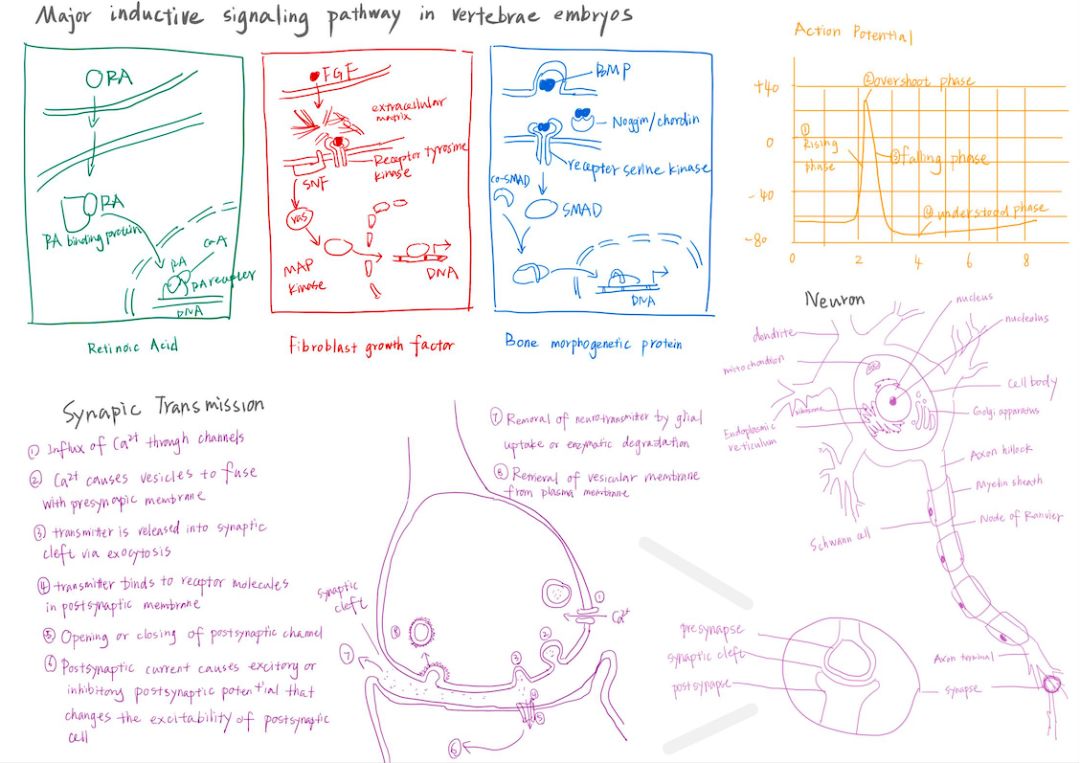 Major inductive signaling pathway in vertebrae embryos
RA
RA
RA binding protein
RA
co-A
RA receptor
DNA
Retinoic Acid
FGF
extracellular
matrix
Receptor tyrosine
kinase
SNF
ras
MAP
kinase
DNA
Fibroblast growth factor
BMP
Noggin/chordin
receptor serine kinase
co-SMAD
SMAD
DNA
Bone morphogenetic protein
Action Potential
+40
0
-40
-80
0
2
4
6
8
② overshoot phase
①
Rising
phase
③ falling phase
④ understood phase
Neuron
nucleus
nucleolus
dendrite
mitochondrion
cell body
Golgi apparatus
Endoplasmic
reticulum
Axon hillock
Myelin sheath
Node of Ranvier
Schwann cell
Axon terminal
synapse
presynapse
synaptic cleft
postsynapse
Synapic Transmission
① Influx of Ca²⁺ through channels
② Ca²⁺ causes vesicles to fuse
with presynapic membrane
③ transmitter is released into synaptic
cleft via exocytosis
④ transmitter binds to receptor molecules
in postsynaptic membrane
⑤ Opening or closing of postsynaptic channel
⑥ Postsynaptic current causes excitory or
inhibitory postsynaptic potential that
changes the excitability of postsynaptic
cell
⑦ Removal of neurotransmitter by glial
uptake or enzymatic degradation
⑧ Retrieval of vesicular membrane
from plasma membrane
synaptic
cleft
①
Ca²⁺
②
③
④
⑤
⑥
⑦
⑧